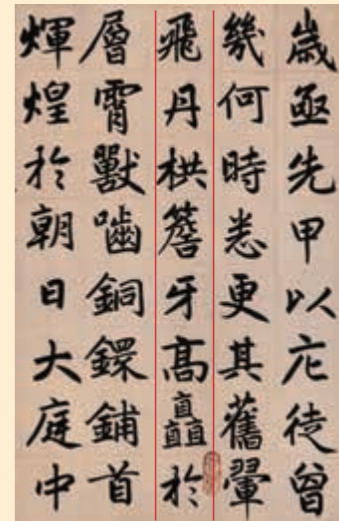 歲亟先甲以庀徒曾
幾何時悉更其舊翬
飛丹栱簷牙高矗於
層霄獸噛銅鐶鋪首
煇煌於朝日大庭中